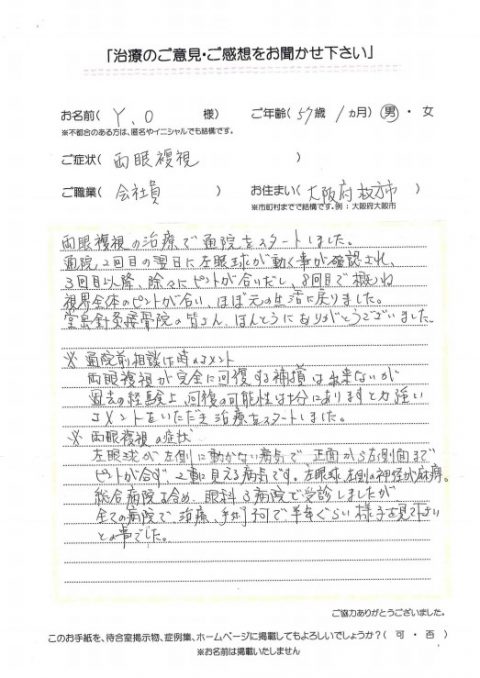 「治療のご意見・ご感想をお聞かせ下さい」
お名前( Y.O 様) ご年齢( 57歳 1ヵ月) 男 ・ 女
※不都合のある方は、匿名やイニシャルでも結構です。
ご症状( 両眼複視 )
ご職業( 会社員 ) お住まい( 大阪府枚方市 )
※市町村までで結構です。例:大阪府大阪市
両眼複視の治療で通院をスタートしました。
通院2回目の翌日に左眼球が動く事が確認され、
3回目以降、除々にピントが合いだし、8回目で概ね
視界全体のピントが合い、ほぼ元の生活に戻りました。
堂島針灸接骨院の皆さん、ほんとうにありがとうございました
※ 通院前相談時のコメント
両眼複視が完全に回復する補償は出来ないが
過去の経験上、回復の可能性は十分にありますと力強い
コメントをいただき治療をスタートしました。
※ 両眼複視の症状
左眼球が左側に動かない病気で、正面から左側面まで
ピントが合ず、2重に見える病気です。左眼球左側の神経が麻痺。
総合病院も含め、眼科3病院で受診しましたが、
全ての病院で治療、手術不可で半年ぐらい様子を見て下さい
との事でした。
ご協力ありがとうございました。
このお手紙を、待合室掲示物、症例集、ホームページに掲載してもよろしいでしょうか?( 可 ・ 否 )
※お名前は掲載いたしません